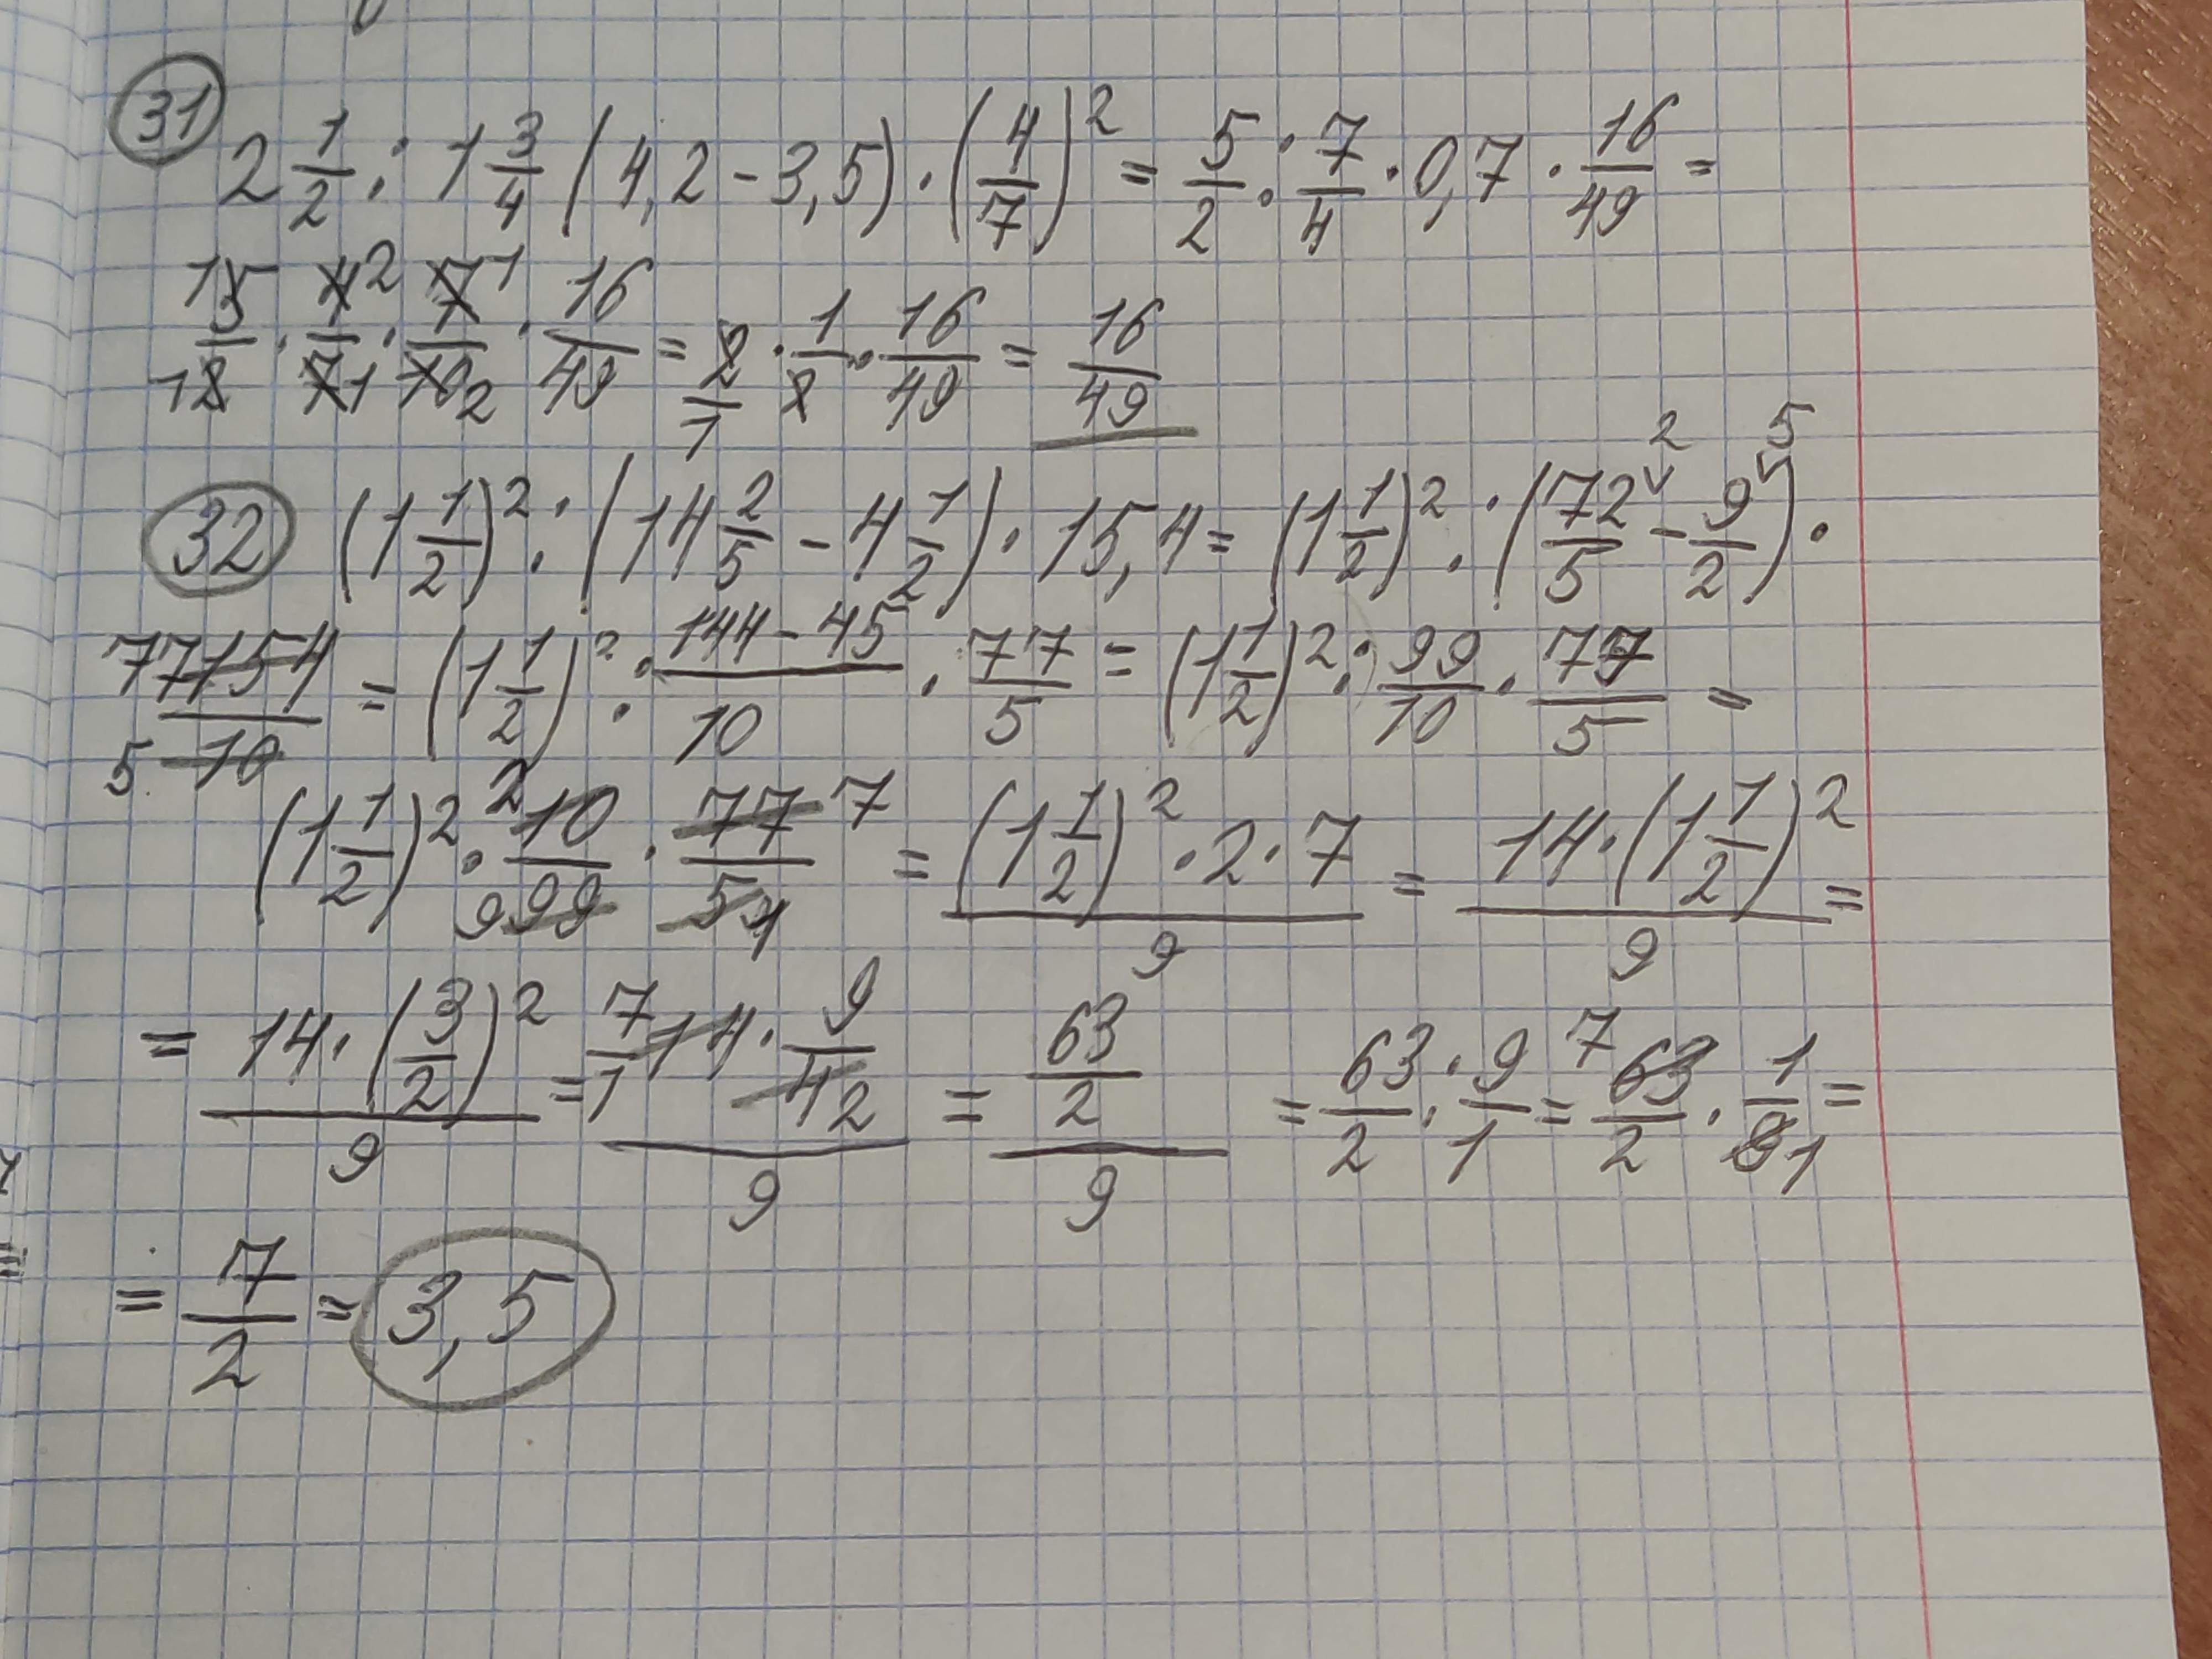 31
2 1/2 : 1 3/4 (4,2 - 3,5) · (4/7)² = 5/2 : 7/4 · 0,7 · 16/49 =
5/2 · 4/7 · 7/10 · 16/49 = 2/1 · 1/2 · 16/49 = 16/49
32 (1 1/2)² : (14 2/5 - 4 1/2) · 15,4 = (1 1/2)² : (72/5 - 9/2) ·
77 154/10 5 = (1 1/2)² : (144 - 45)/10 · 77/5 = (1 1/2)² : 99/10 · 77/5 =
(1 1/2)² · 10/99 · 77/5 = ((1 1/2)² · 2 · 7)/9 = (14 · (1 1/2)²)/9 =
= (14 · (3/2)²)/9 = (14 · 9/4)/9 = (63/2)/9 = 63/2 : 9/1 = 63/2 · 1/9 =
= 7/2 = 3,5